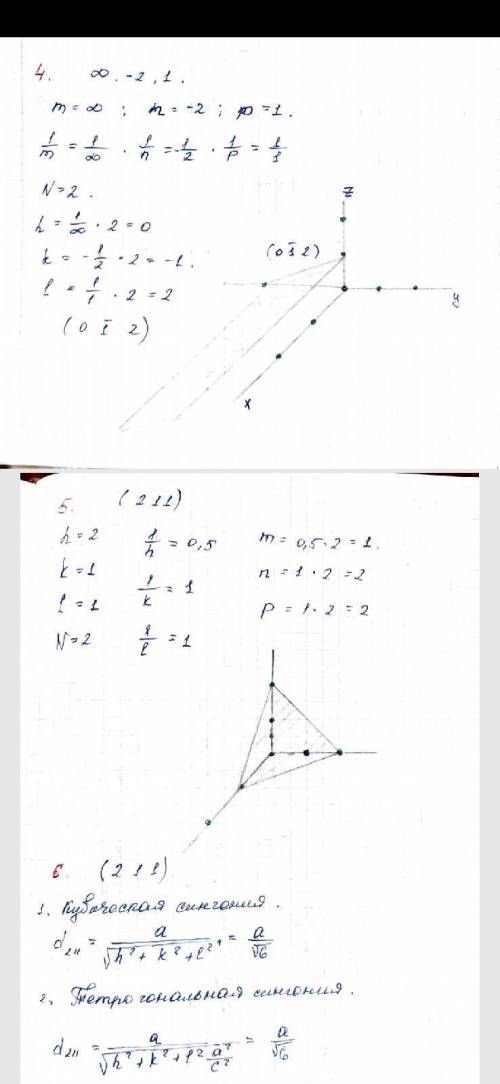 4. ∞. -2, 1.
m = ∞ ; n = -2 ; p = 1.
1/m = 1/∞ · 1/n = -1/2 · 1/p = 1/1
N = 2.
h = 1/∞ · 2 = 0
k = -1/2 · 2 = -1.
l = 1/1 · 2 = 2
(0 1̄ 2)
z
(0 1̄ 2)
y
x
5. (211)
h = 2 1/h = 0,5 m = 0,5·2 = 1.
k = 1 1/k = 1 n = 1 · 2 = 2
l = 1 1/l = 1 p = 1·2 = 2
N = 2
6 (2 1 1)
1. Кубическая сингония.
d₂₁₁ = a/√(h² + k² + l²) = a/√6
2, Тетрогональная сингония.
d₂₁₁ = a/√(h² + k² + l² a²/c²) = a/√6